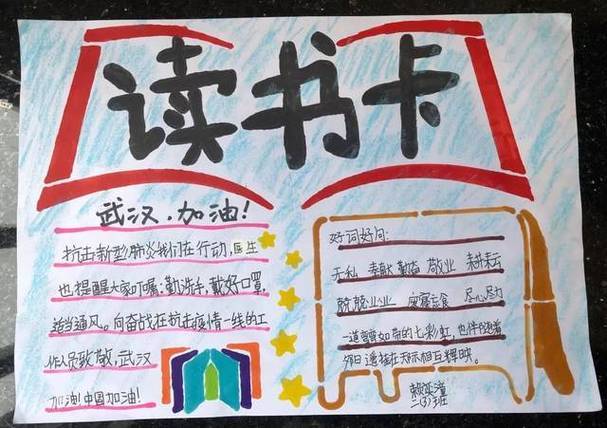 读书卡
武汉,加油!
抗击新型肺炎我们在行动,医生
也提醒大家叮嘱:勤洗手,戴好口罩,
适当通风。向奋战在抗击疫情一线的工
作人员致敬,武汉
加油!中国加油!
好词好句:
无私 奉献 勤恳 敬业 耕耘
兢兢业业 废寝忘食 尽心尽力
一道弯弯如带的七彩虹,也伴随着
夕日遥挂在天际相互辉映。
二(3)班